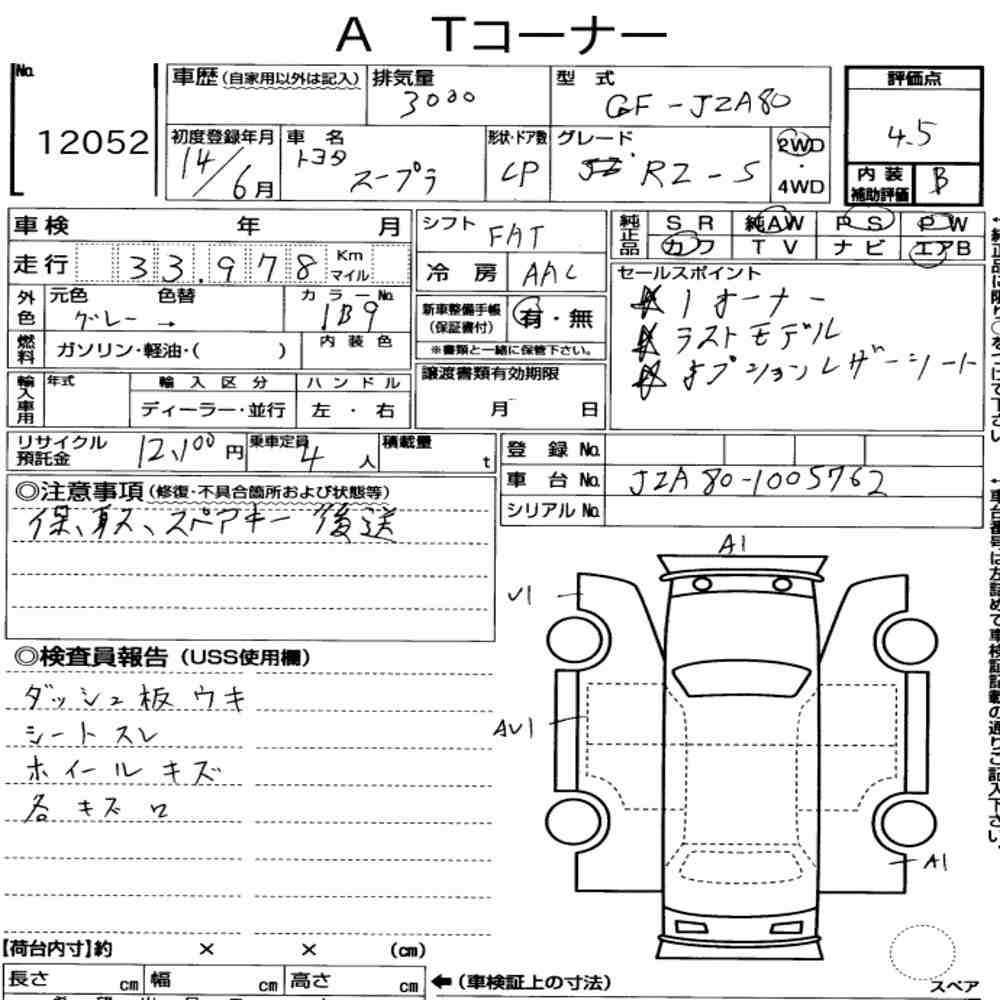 A Tコーナー
No.
12052
車歴(自家用以外は記入)
排気量
3000
型式
GF-JZA80
評価点
4.5
初度登録年月
14/6月
車名
トヨタ
スープラ
形状・ドア数
CP
グレード
RZ-S
2WD
・
4WD
内装
補助評価
B
車検 年 月
走行 33.978 Km マイル
外色
元色 色替
グレー →
カラーNo
1B9
燃料
ガソリン・軽油・( )
内装色
輸入車用
年式
輸入区分
ディーラー・並行
ハンドル
左・右
シフト
FAT
冷房
AAC
新車整備手帳
(保証書付)
有・無
※書類と一緒に保管下さい。
譲渡書類有効期限
月 日
純正品
SR 純AW PS PW
カワ TV ナビ エアB
セールスポイント
1オーナー
ラストモデル
オプションレザーシート
←純正品に限り○をつけて下さい
リサイクル
預託金
12,100円
乗車定員
4人
積載量
t
登録No.
車台No.
JZA80-1005762
シリアルNo.
←車台番号は左詰めで車検証記載の通りご記入下さい。
◎注意事項(修復・不具合箇所および状態等)
保、取ス、スペアキー後送
◎検査員報告(USS使用欄)
ダッシュ板ウキ
シートスレ
ホイールキズ
各キズ口
A1
U1
AU1
A1
【荷台内寸】約 × × (cm)
長さ cm 幅 cm 高さ cm
←(車検証上の寸法)
スペア